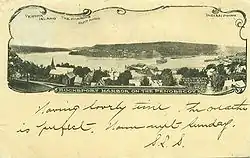 VERONA
ISLAND
INDIAN POINT
BUCKSPORT HARBOR ON THE PENOBSCOT
Having lovely time. The weather
is perfect. Home next Sunday.
S.L.S.